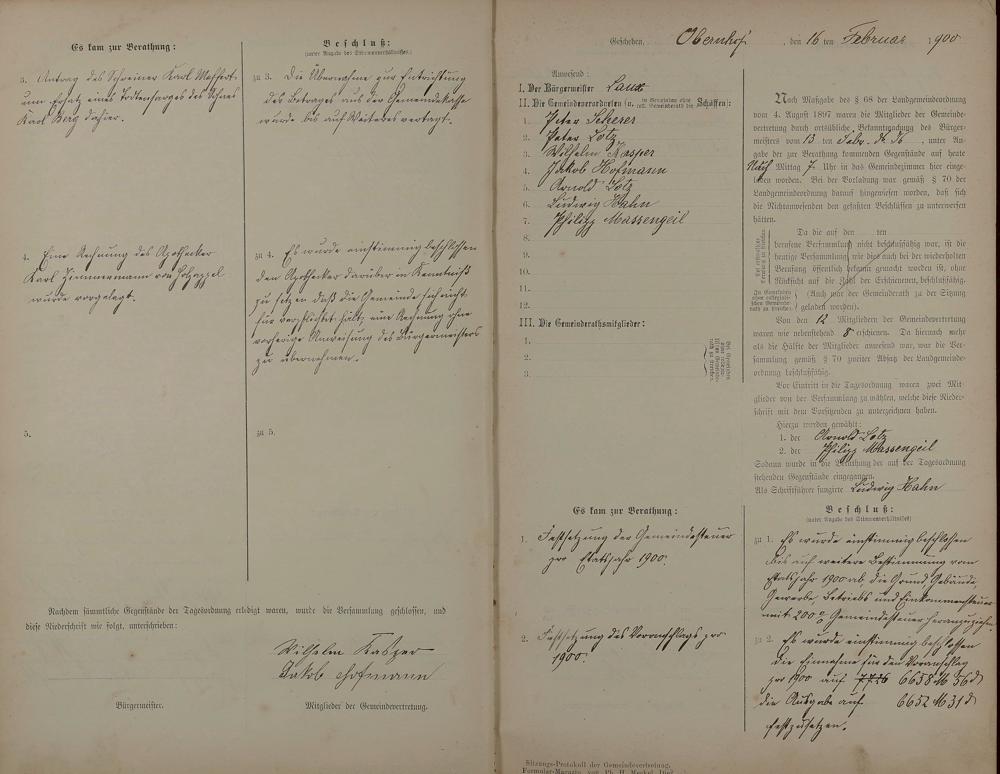 Es kam zur Berathung:
Beschluß:
(unter Angabe des Stimmenverhältnisses.)
3. Antrag des Schreiner Karl
um Ersatz eines Todtensarges des Sohnes
Karl Berg dahier.
zu 3. Die Übernahme zur Entrichtung
des Betrages aus der Gemeindekasse
wurde bis auf Weiteres vertagt.
4. Eine Rechnung des Apotheker
Karl Zimmermann von Holzappel
wurde vorgelegt.
zu 4. Es wurde einstimmig beschlossen
den Apotheker darüber in Kenntniß
zu setzen daß die Gemeinde sich nicht
für verpflichtet hält, eine Rechnung ohne
vorherige Anweisung des Bürgermeisters
zu übernehmen.
5.
zu 5.
Nachdem sämmtliche Gegenstände der Tagesordnung erledigt waren, wurde die Versammlung geschlossen, und
diese Niederschrift wie folgt, unterschrieben:
Wilhelm Kasper
Jakob Hofmann
Bürgermeister.
Mitglieder der Gemeindevertretung.
Geschehen, Obernhof, den 16 ten Februar 1900
Anwesend:
I. Der Bürgermeister
II. Die Gemeindeverordneten (u. in Gemeinden ohne coll. Gemeinderath die Schöffen):
1. Peter Scherer
2. Peter Lotz
3. Wilhelm Kasper
4. Jakob Hofmann
5. Arnold Lotz
6. Ludwig Hahn
7. Philipp Massengeil
8.
9.
10.
11.
12.
III. Die Gemeinderathsmitglieder:
1.
2.
3.
Nach Maßgabe des § 68 der Landgemeindeordnung
vom 4. August 1897 waren die Mitglieder der Gemeinde-
vertretung durch ortsübliche Bekanntmachung des Bürger-
meisters vom 13 ten Febr. d. Js., unter An-
gabe der zur Berathung kommenden Gegenstände auf heute
Nach Mittag 7 Uhr in das Gemeindezimmer hier einge-
laden worden. Bei der Vorladung war gemäß § 70 der
Landgemeindeordnung darauf hingewiesen worden, daß sich
die Nichtanwesenden den gefaßten Beschlüssen zu unterwerfen
hätten.
Da die auf den ten
berufene Versammlung nicht beschlußfähig war, ist die
heutige Versammlung wie dies auch bei der wiederholten
Berufung öffentlich bekannt gemacht worden ist, ohne
Rücksicht auf die Zahl der Erschienenen, beschlußfähig.
(Auch war der Gemeinderath zu der Sitzung
geladen worden).
Von den 12 Mitgliedern der Gemeindevertretung
waren wie nebenstehend 8 erschienen. Da hiernach mehr
als die Hälfte der Mitglieder anwesend war, war die Ver-
sammlung gemäß § 70 zweiter Absatz der Landgemeinde-
ordnung beschlußfähig.
Vor Eintritt in die Tagesordnung waren zwei Mit-
glieder von der Versammlung zu wählen, welche diese Nieder-
schrift mit dem Vorsitzenden zu unterzeichnen haben.
Hierzu wurden gewählt:
1. der Arnold Lotz
2. der Philipp Massengeil
Sodann wurde in die Berathung der auf der Tagesordnung
stehenden Gegenstände eingegangen.
Als Schriftführer fungirte Ludwig Hahn
Es kam zur Berathung:
Beschluß:
(unter Angabe des Stimmenverhältnisses)
1. Festsetzung der Gemeindesteuer
pro Etatsjahr 1900.
zu 1. Es wurde einstimmig beschlossen
bis auf weitere Bestimmung vom
Etatsjahr 1900 ab, die Grund, Gebäude,
Gewerbe, Betriebs und Einkommensteuer
mit 200% Gemeindesteuer heranzuziehen.
2. Festsetzung des Voranschlags pro
1900.
zu 2. Es wurde einstimmig beschlossen
die Einnahme für den Voranschlag
pro 1900 auf 6658 M 56 d
die Ausgabe auf 6652 M 31 d
festzusetzen.
Sitzungs-Protokoll der Gemeindevertretung.